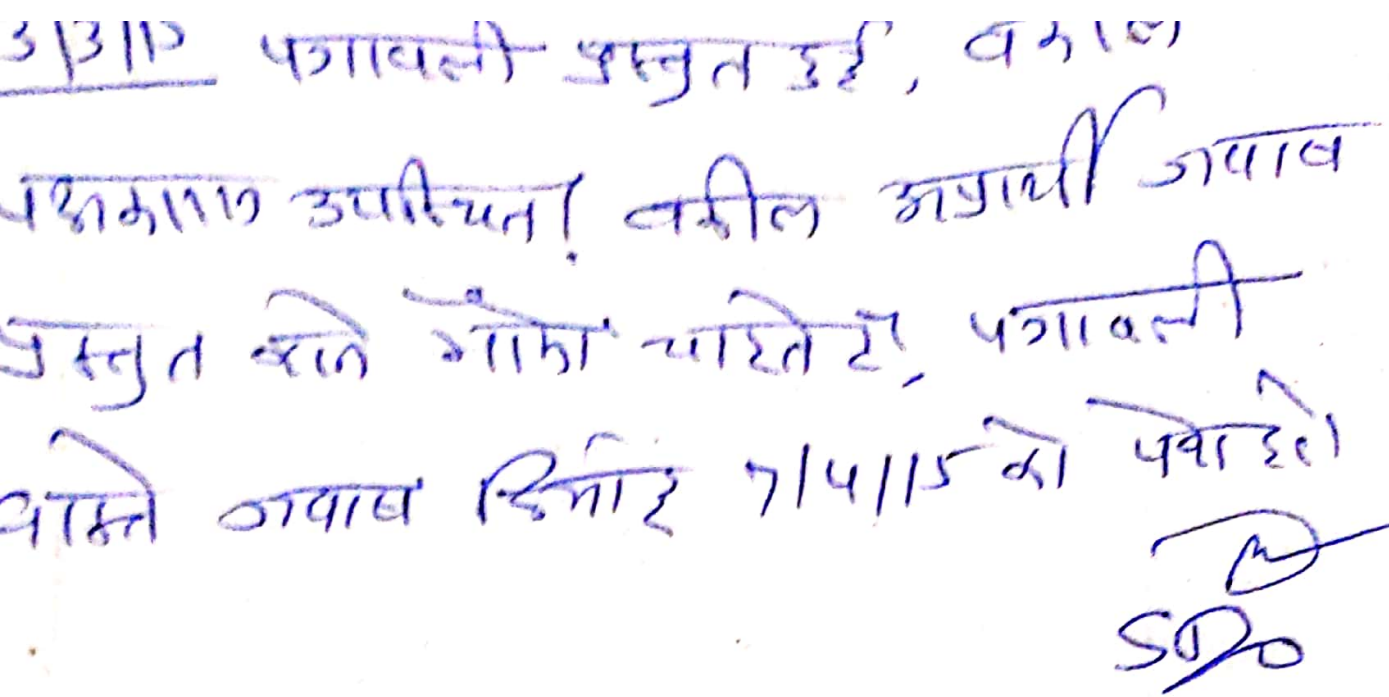 3/3/15 पत्रावली प्रस्तुत हुई, वकील
पक्षकारान उपस्थित। वकील अप्रार्थी जवाब
प्रस्तुत करने मौका चाहते है, पत्रावली
वास्ते जवाब दिनांक 7/4/15 को पेश हो।
SDO